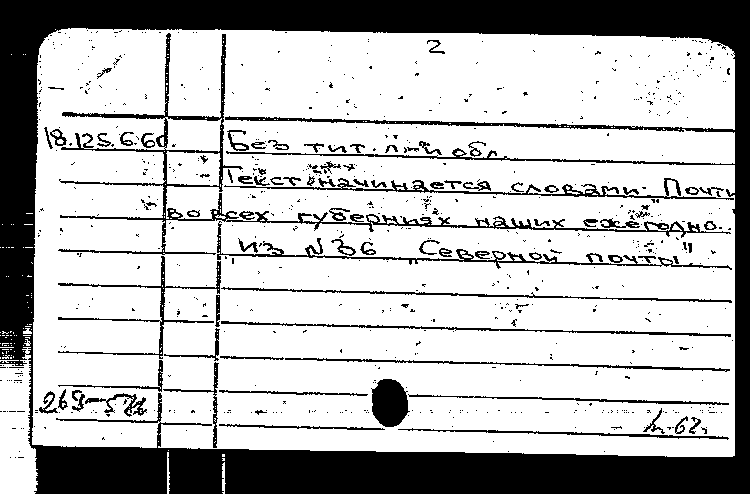 2
18.125.6.60. Без тит. л. и обл.
Текст начинается словами: „Почти
во всех губерниях наших ежегодно..
из N 36 „Северной почты".
269-
62г.